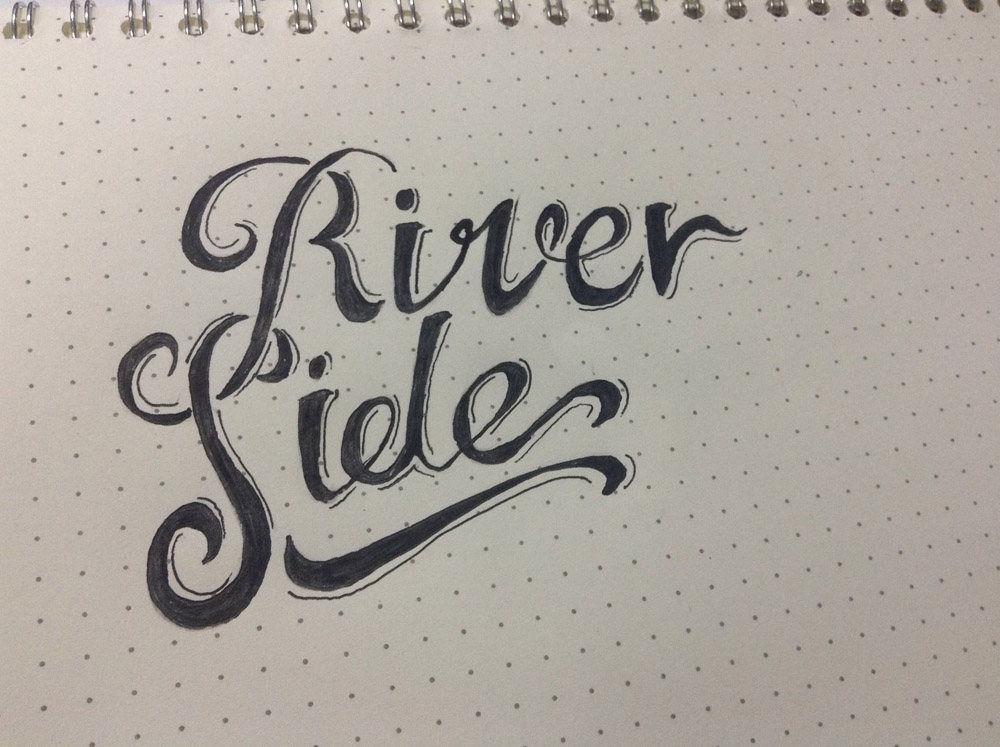 River
Side